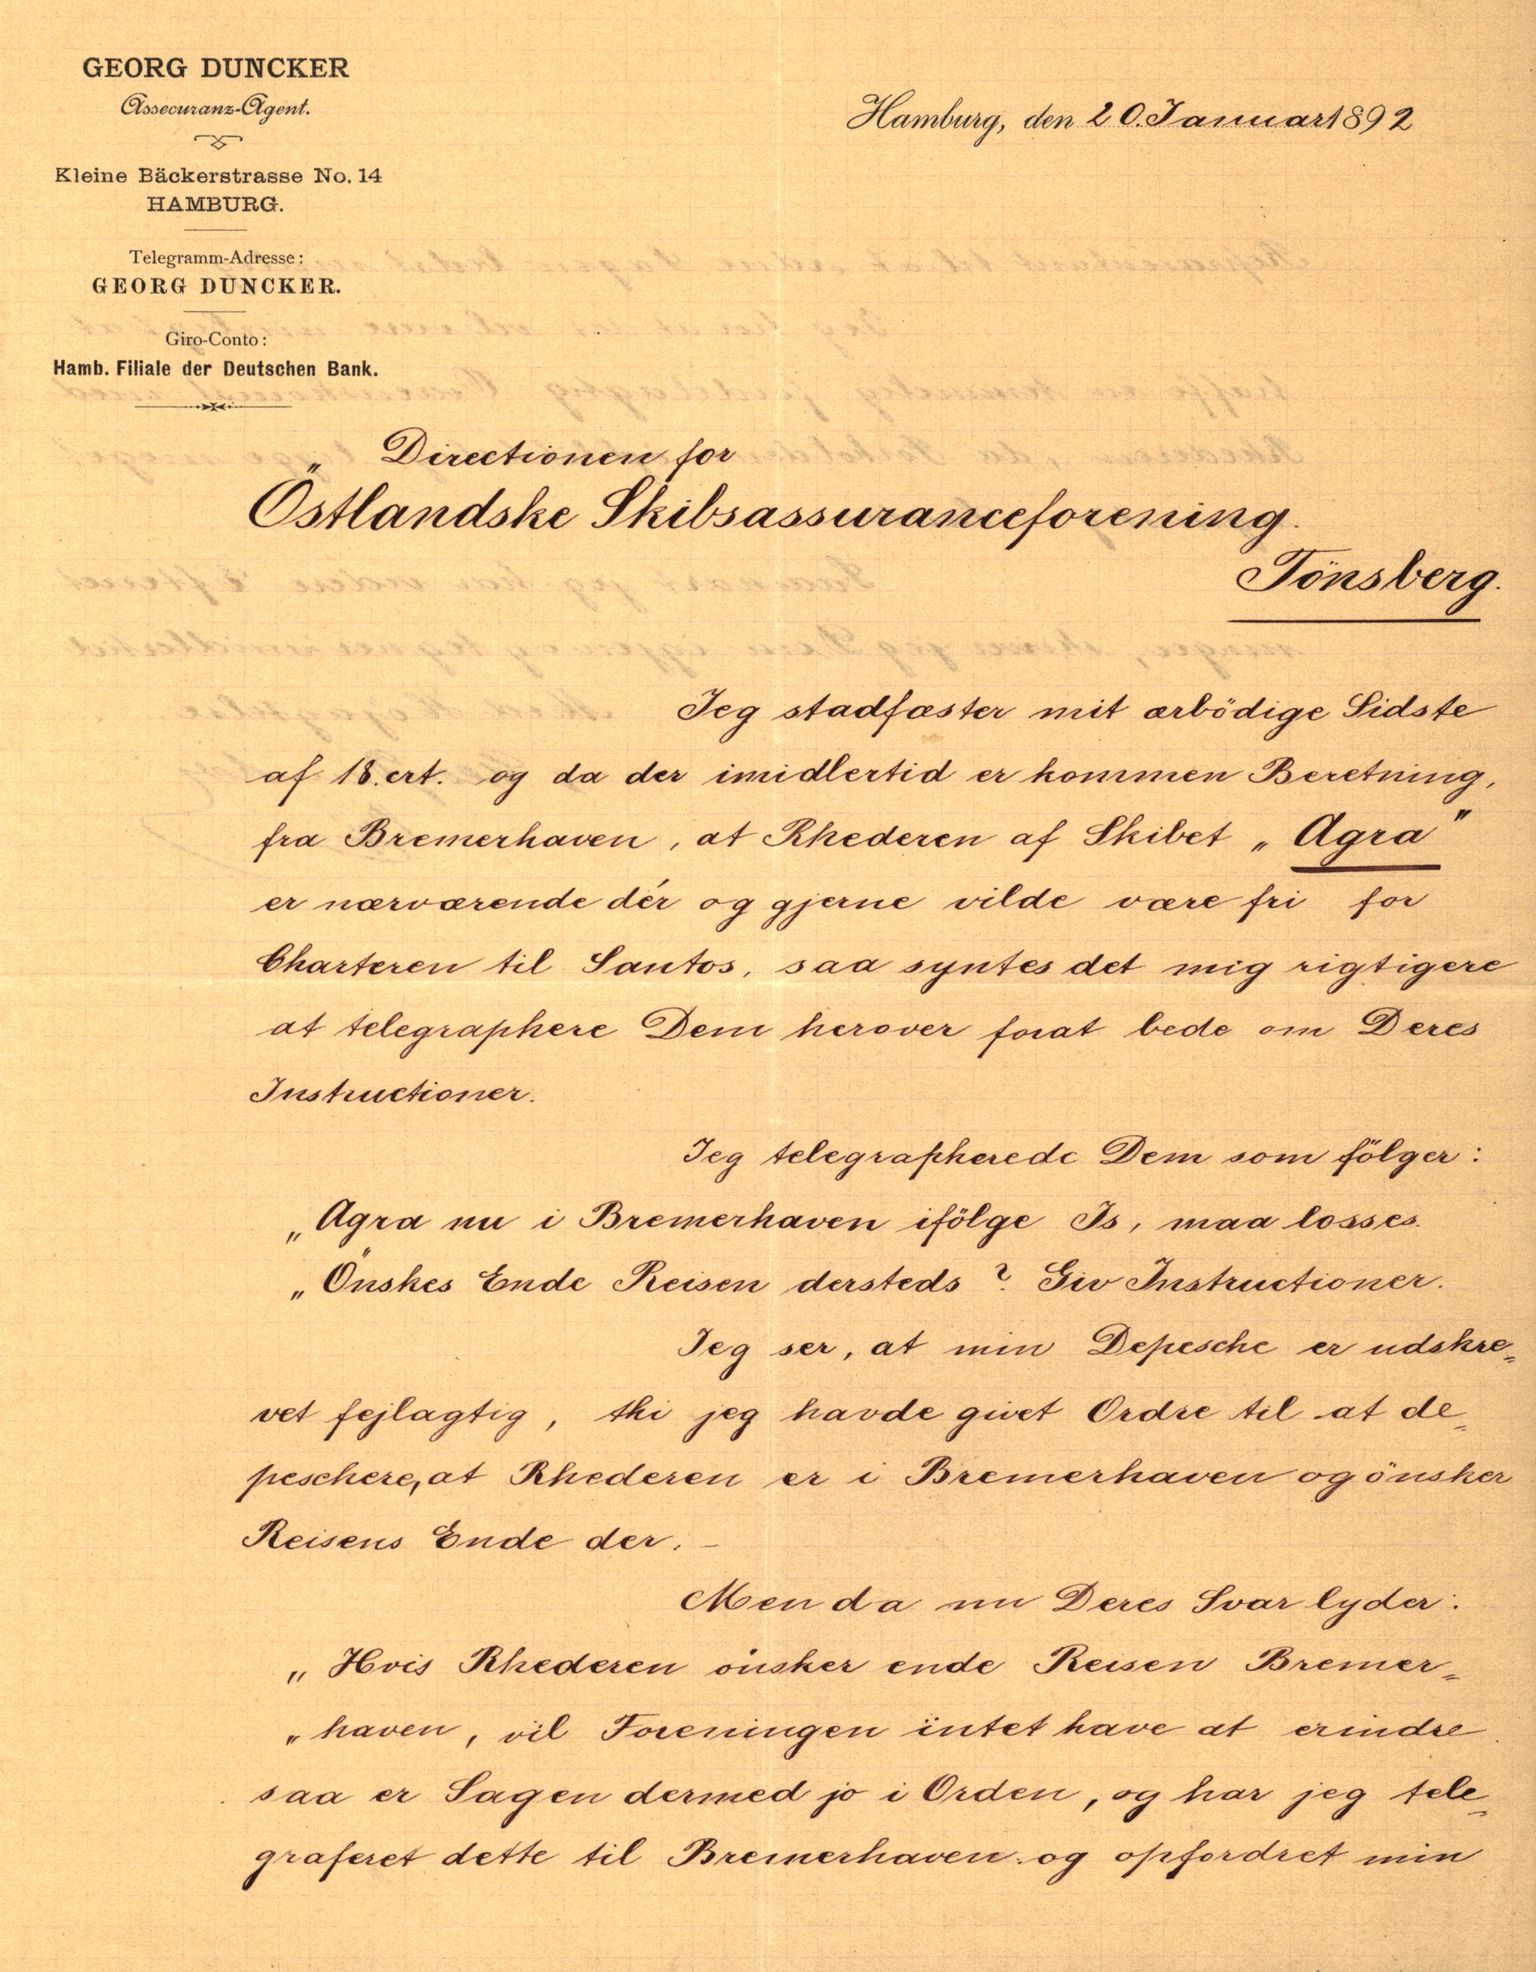 GEORG DUNCKER
Assecuranz-Agent.
Kleine Bäckerstrasse No. 14
HAMBURG.
Telegramm-Adresse:
GEORG DUNCKER.
Giro-Conto:
Hamb. Filiale der Deutschen Bank.
Hamburg, den 20. Januar 1892
Directionen for
Östlandske Skibsassuranceforening.
Tönsberg.
Jeg stadfæster mit ærbödige Sidste
af 18. crt. og da der imidlertid er kommen Beretning,
fra Bremerhaven, at Rhederen af Skibet „Agra"
er nærværende dér og gjerne vilde være fri for
Charteren til Santos, saa syntes det mig rigtigere
at telegraphere Dem herover forat bede om Deres
Instructioner.
Jeg telegrapherede Dem som fölger:
„Agra nu i Bremerhaven ifölge Is, maa losses.
„Önskes Ende Reisen dersteds? Giv Instructioner.
Jeg ser, at min Depesche er udskre=
vet fejlagtig, thi jeg havde givet Ordre til at de=
peschere, at Rhederen er i Bremerhaven og önsker
Reisens Ende der. –
Men da nu Deres Svar lyder:
„Hvis Rhederen önsker ende Reisen Bremer=
„haven, vil Foreningen intet have at erindre
saa er Sagen dermed jo i Orden, og har jeg tele=
graferet dette til Bremerhaven og opfordret min